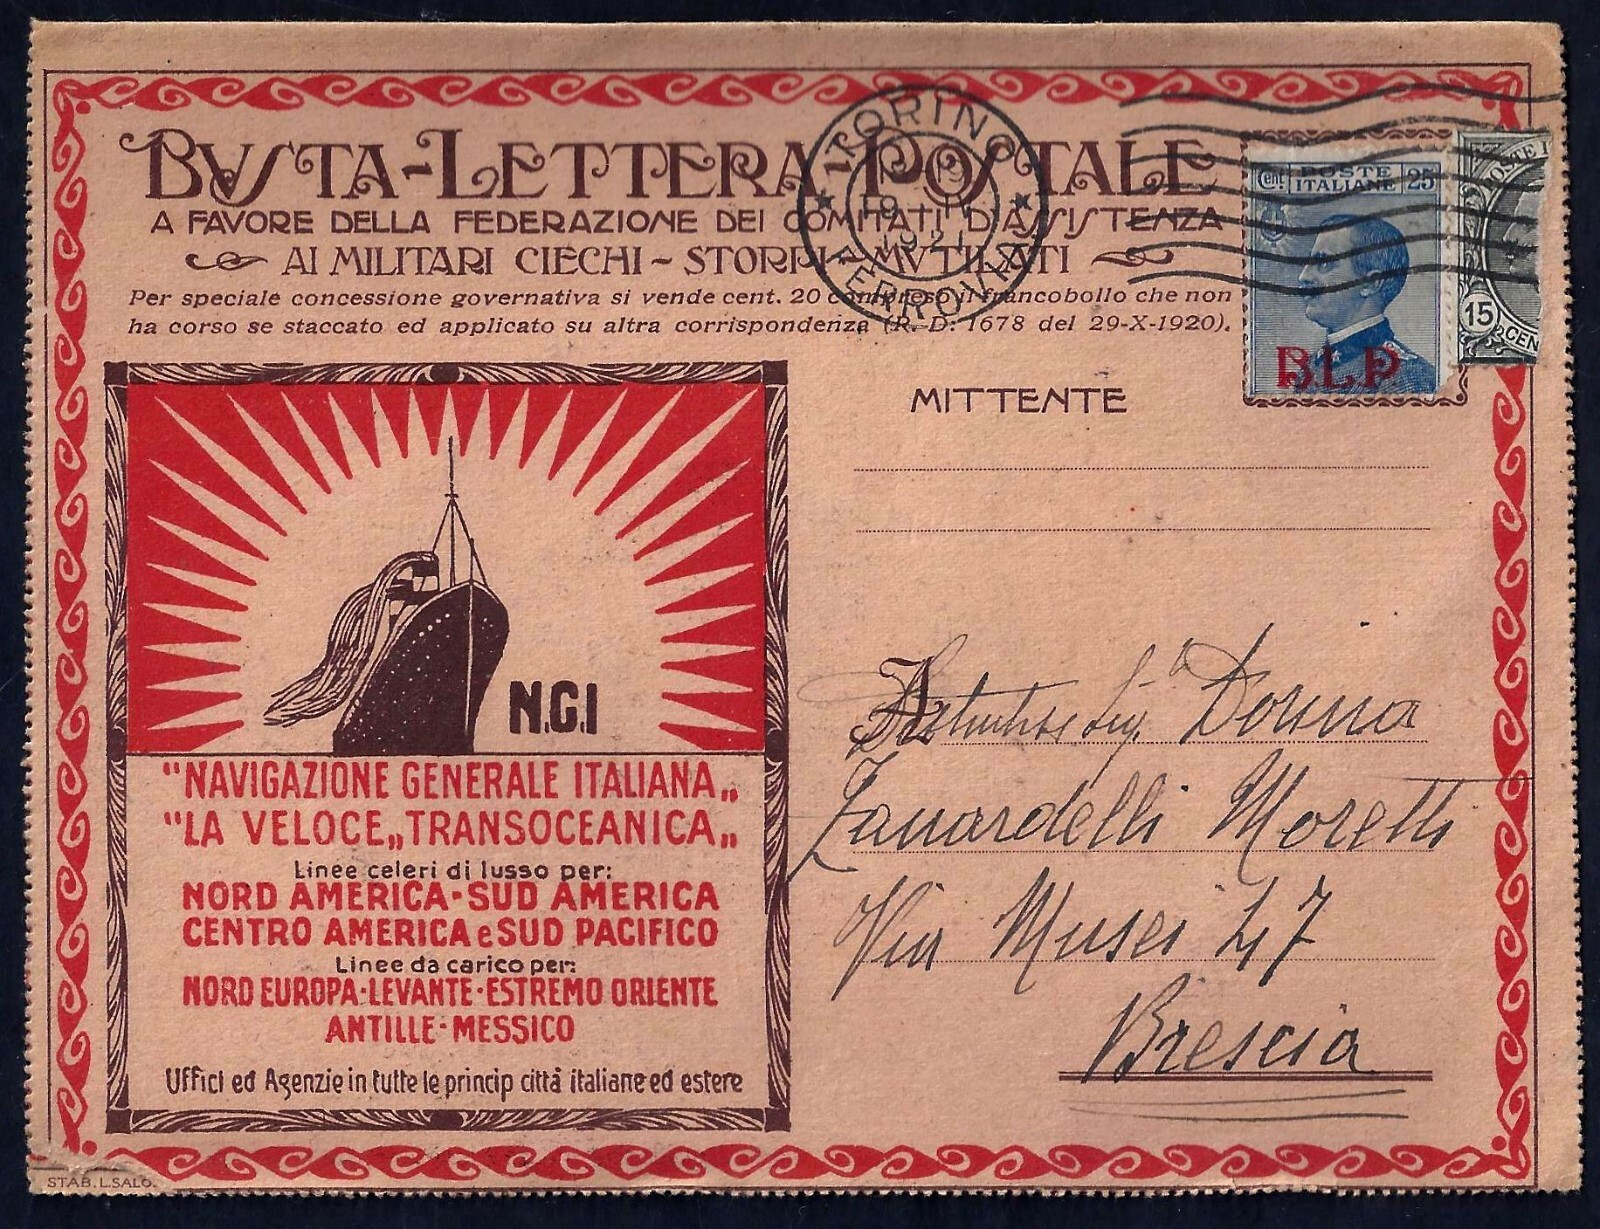 BUSTA-LETTERA POSTALE
A FAVORE DELLA FEDERAZIONE DEI COMITATI D'ASSISTENZA
AI MILITARI CIECHI ~ STORPI ~ MUTILATI
Per speciale concessione governativa si vende cent. 20 compreso il francobollo che non
ha corso se staccato ed applicato su altra corrispondenza (R. D. 1678 del 29-X-1920).
TORINO
19
1921
FERROVIA
Cent. POSTE ITALIANE 25
B.L.P.
POSTE I
15 CEN
MITTENTE
N.G.I
"NAVIGAZIONE GENERALE ITALIANA„
"LA VELOCE„ TRANSOCEANICA„
Linee celeri di lusso per:
NORD AMERICA-SUD AMERICA
CENTRO AMERICA e SUD PACIFICO
Linee da carico per:
NORD EUROPA-LEVANTE-ESTREMO ORIENTE
ANTILLE-MESSICO
Uffici ed Agenzie in tutte le princip città italiane ed estere
Sig.ª Dorina
Zanardelli Moretti
Via Musei 47
Brescia
STAB. L. SALO.